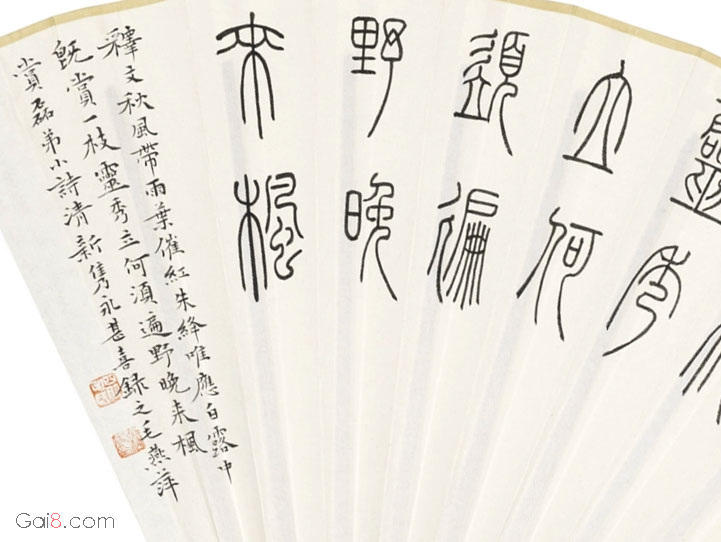 靈秀
立何
須遍
野晚
來楓
釋文秋風帶雨葉催紅朱絳唯應白露中
既賞一枝靈秀立何須遍野晚来楓
賞磊弟小詩清新雋永甚喜録之毛燕萍
Gai8.com